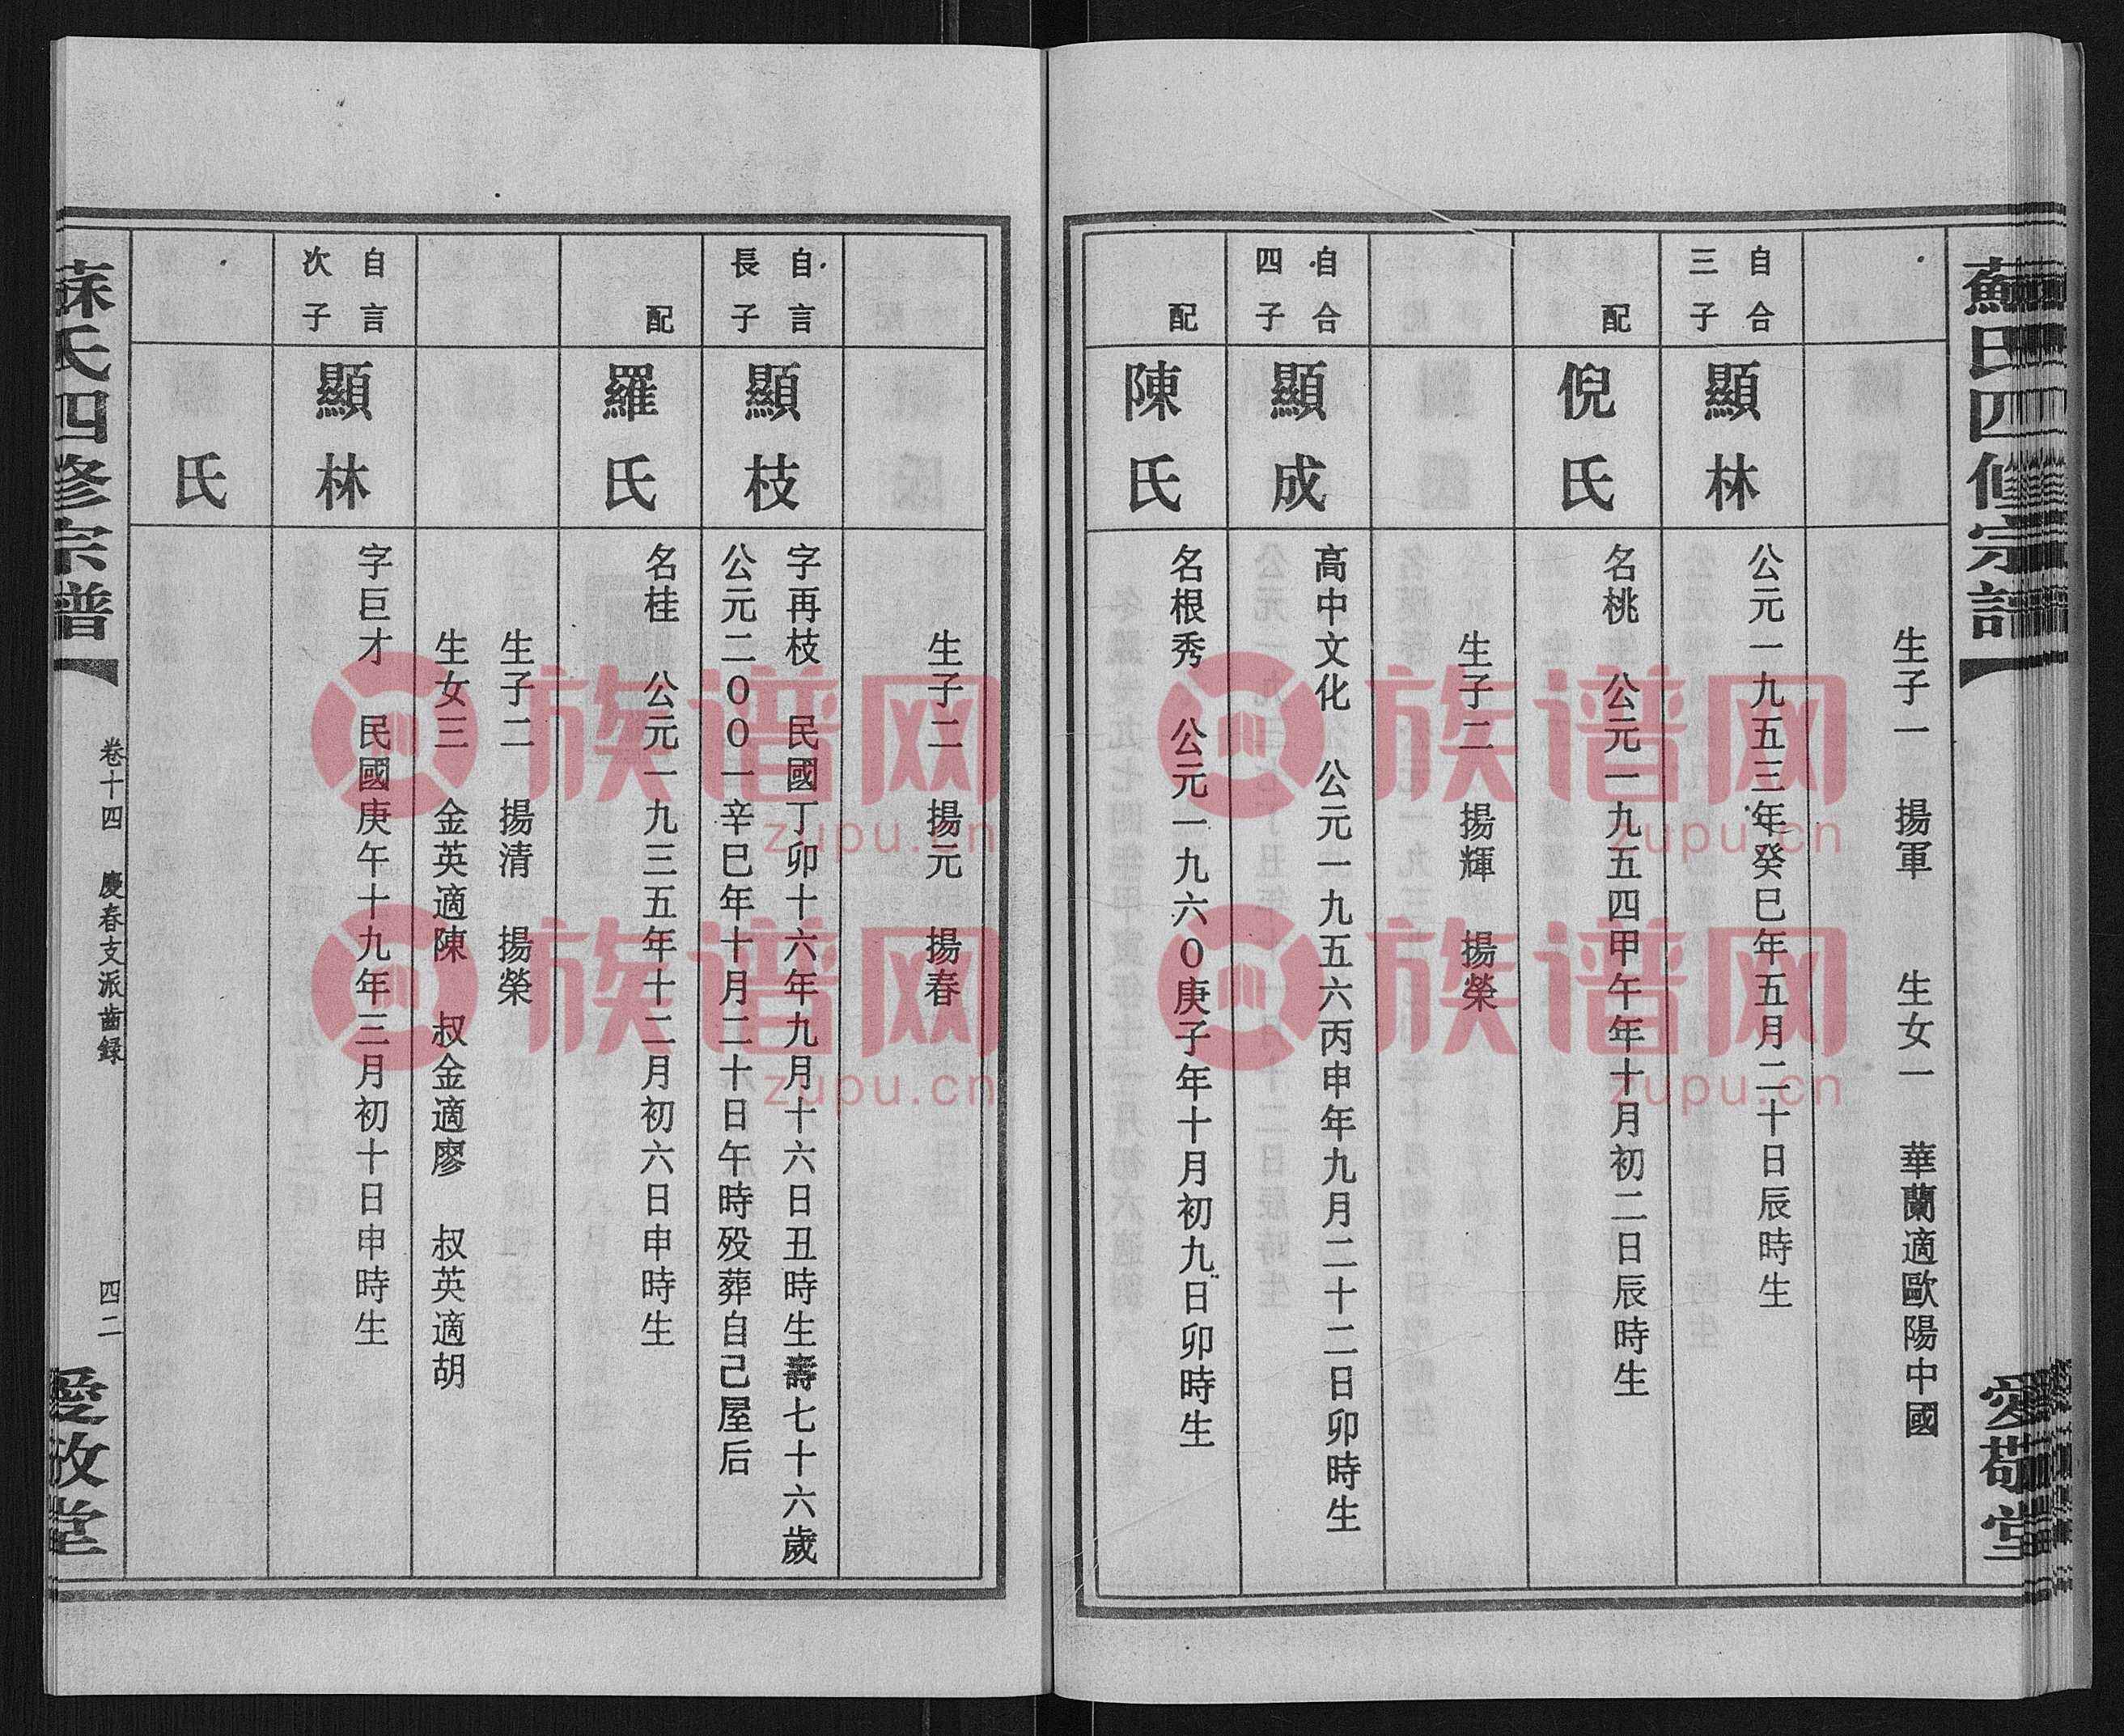 蘇氏四修宗譜
愛敬堂
生子一 揚軍 生女一 華蘭適歐陽中國
自合
三子
顯林
公元一九五三年癸巳年五月二十日辰時生
配
倪氏
名桃 公元一九五四甲午年十月初二日辰時生
生子二 揚輝 揚榮
自合
四子
顯成
高中文化 公元一九五六丙申年九月二十二日卯時生
配
陳氏
名根秀 公元一九六〇庚子年十月初九日卯時生
生子二 揚元 揚春
自言
長子
顯枝
字再枝 民國丁卯十六年九月十六日丑時生壽七十六歲
公元二〇〇一辛巳年十月二十日午時殁葬自己屋后
配
羅氏
名桂 公元一九三五年十二月初六日申時生
生子二 揚清 揚榮
生女三 金英適陳 叔金適廖 叔英適胡
自言
次子
顯林
字巨才 民國庚午十九年三月初十日申時生
氏
蘇氏四修宗譜
卷十四 慶春支派齒録
四二
愛敬堂
族谱网
zupu.cn
族谱网
zupu.cn
族谱网
zupu.cn
族谱网
zupu.cn